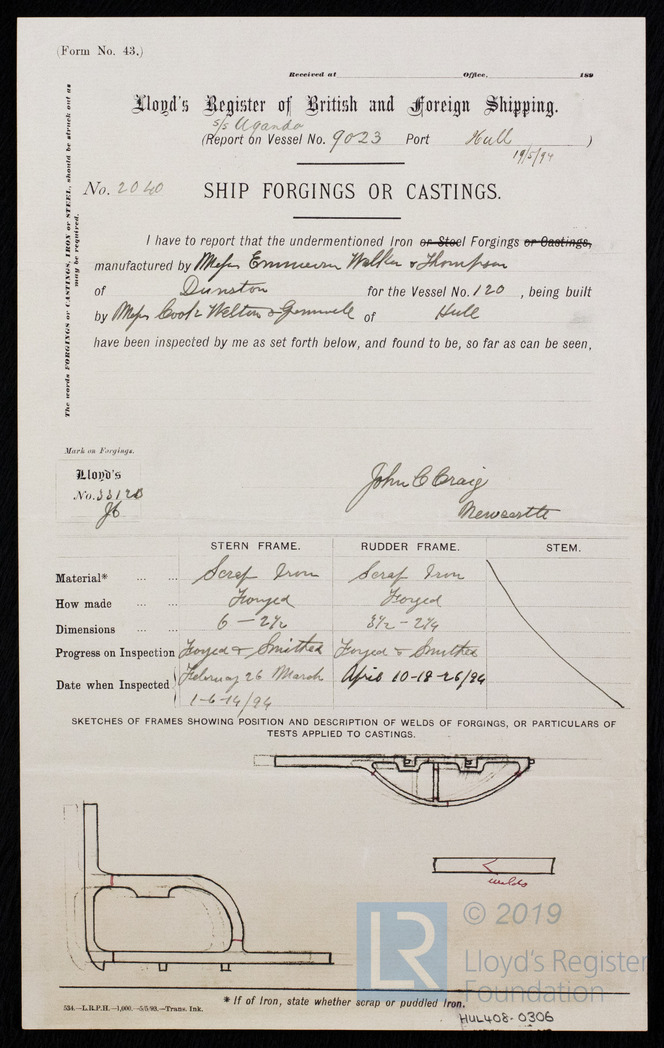 (Form No. 43.)
Received at Office, 189
Lloyd's Register of British and Foreign Shipping.
s/s Uganda
(Report on Vessel No. 9023 Port Hull )
19/5/94
No. 2040 SHIP FORGINGS OR CASTINGS.
The words FORGINGS or CASTINGS, IRON or STEEL, should be struck out as
may be required.
I have to report that the undermentioned Iron or Steel Forgings or Castings,
manufactured by Messrs Emmerson Walker & Thompson
of Dunston for the Vessel No. 120 , being built
by Messrs Cook Welton & Gemmell of Hull
have been inspected by me as set forth below, and found to be, so far as can be seen,
Mark on Forgings.
Lloyd's
No.
John C Craig
Newcastle
STERN FRAME. RUDDER FRAME. STEM.
Material* ... ... Scrap Iron Scrap Iron
How made ... ... Forged Forged
Dimensions ... ... 6 — 2½ 3½ - 2¼
Progress on Inspection Forged & Smithed Forged & Smithed
Date when Inspected February 26 March April 10-18-26/94
1-6-14/94
SKETCHES OF FRAMES SHOWING POSITION AND DESCRIPTION OF WELDS OF FORGINGS, OR PARTICULARS OF
TESTS APPLIED TO CASTINGS.
welds
LR
© 2019
Lloyd's Register
Foundation
* If of Iron, state whether scrap or puddled Iron.
534.—L.R.P.H.—1,000.—5/5/93.—Trans. Ink.
HUL408-0306